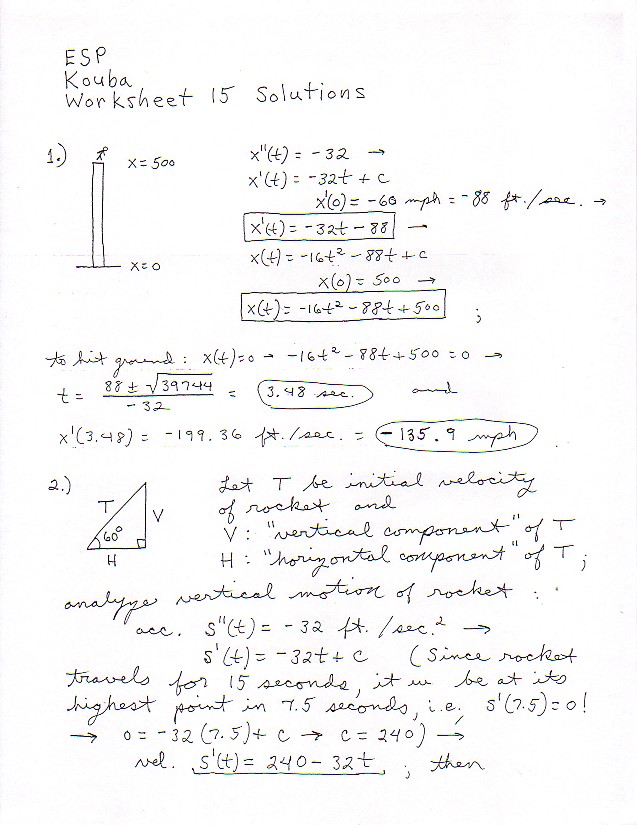 ESP
Kouba
Worksheet 15 Solutions
1.)
x = 500
x = 0
x''(t) = -32 →
x'(t) = -32t + c
x'(0) = -60 mph = -88 ft./sec. →
x'(t) = -32t - 88 →
x(t) = -16t² - 88t + c
x(0) = 500 →
x(t) = -16t² - 88t + 500 ;
to hit ground : x(t)=0 → -16t² - 88t + 500 = 0 →
t = (88 ± √39744) / -32 = 3.48 sec. and
x'(3.48) = -199.36 ft./sec. = -135.9 mph
2.)
T
V
60°
H
Let T be initial velocity
of rocket and
V : "vertical component" of T
H : "horizontal component" of T ;
analyze vertical motion of rocket :
acc. S''(t) = -32 ft./sec.² →
S'(t) = -32t + c (Since rocket
travels for 15 seconds, it w be at its
highest point in 7.5 seconds, i.e., S'(7.5)=0!
→ 0 = -32(7.5) + c → c = 240) →
vel. S'(t) = 240 - 32t ; then